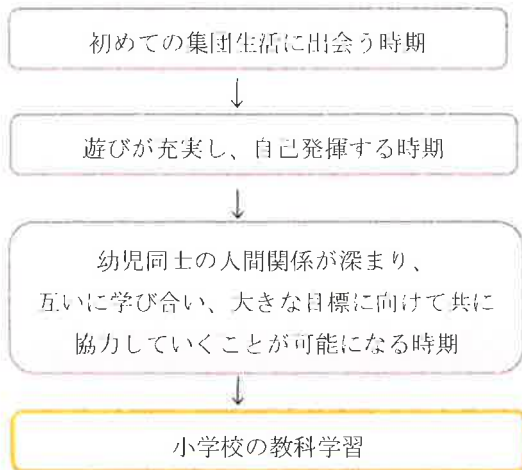 初めての集団生活に出会う時期
↓
遊びが充実し、自己発揮する時期
↓
幼児同士の人間関係が深まり、
互いに学び合い、大きな目標に向けて共に
協力していくことが可能になる時期
↓
小学校の教科学習